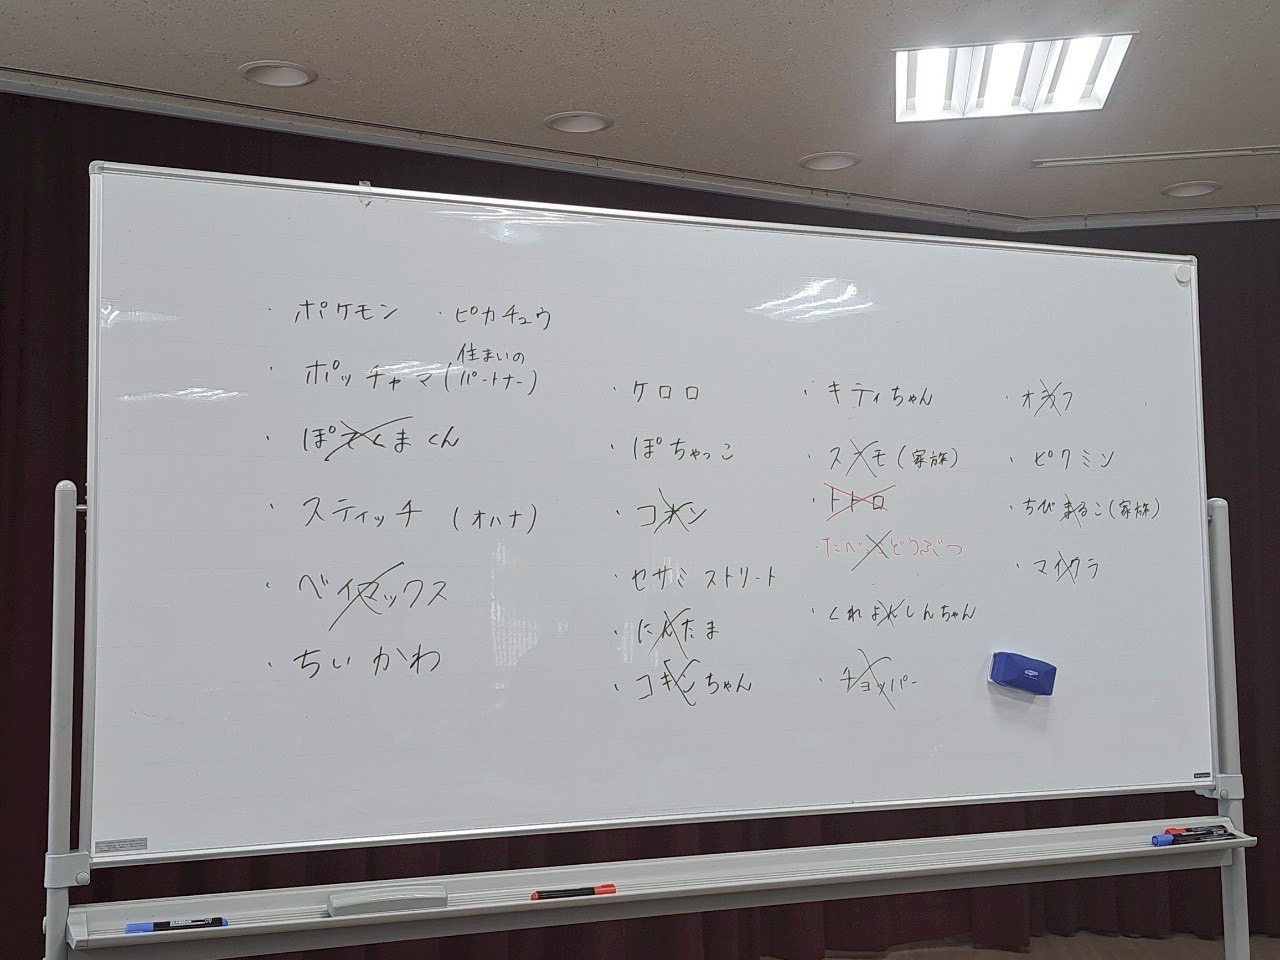 ・ポケモン ・ピカチュウ
・ポッチャマ(住まいのパートナー)
・ぽてくまくん
・スティッチ (オハナ)
・ベイマックス
・ちいかわ
・ケロロ
・ぽちゃっこ
・コナン
・セサミストリート
・にんたま
・コキンちゃん
・キティちゃん
・スヌモ(家族)
・トトロ
・たべっ子どうぶつ
・くれよんしんちゃん
・チョッパー
・オラフ
・ピクミン
・ちびまるこ(家族)
・マイクラ